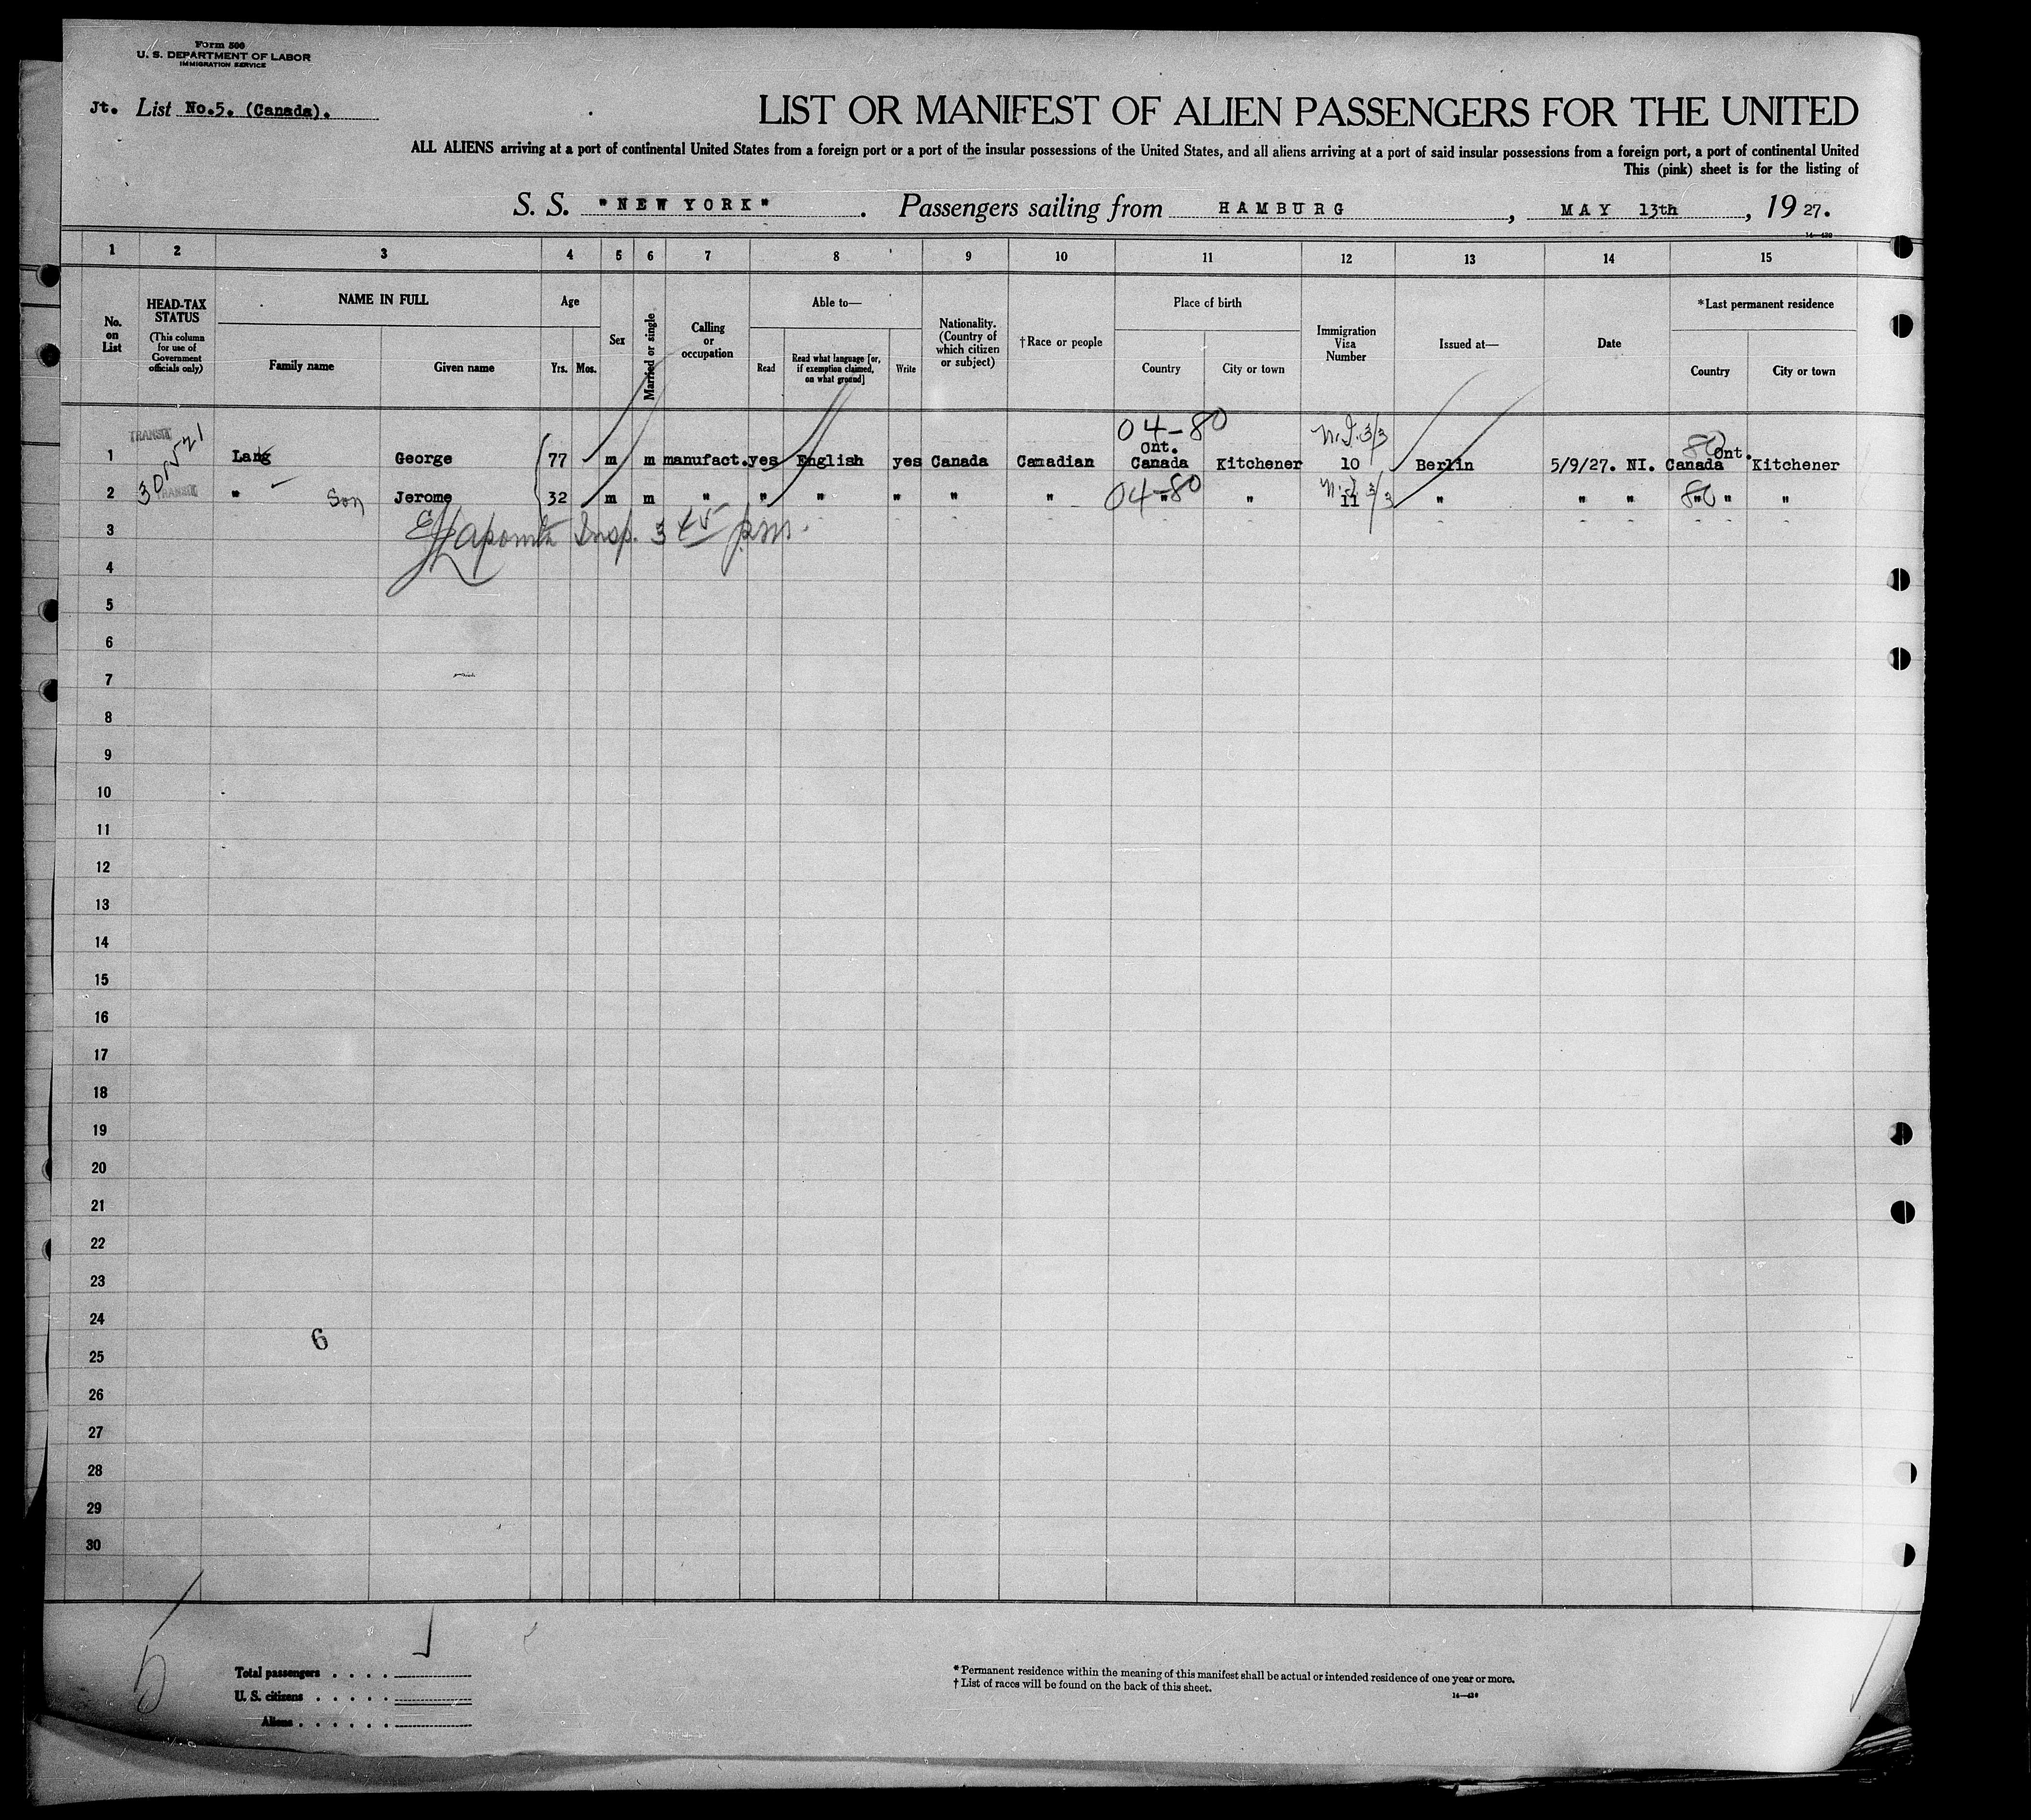 Form 500
U. S. DEPARTMENT OF LABOR
IMMIGRATION SERVICE
Jt. List No.5. (Canada).
LIST OR MANIFEST OF ALIEN PASSENGERS FOR THE UNITED
ALL ALIENS arriving at a port of continental United States from a foreign port or a port of the insular possessions of the United States, and all aliens arriving at a port of said insular possessions from a foreign port, a port of continental United
This (pink) sheet is for the listing of
S. S. "NEW YORK". Passengers sailing from HAMBURG, MAY 13th, 19 27.
1 2 3 4 5 6 7 8 9 10 11 12 13 14 15
No. on List
HEAD-TAX STATUS (This column for use of Government officials only)
NAME IN FULL
Family name Given name
Age
Yrs. Mos.
Sex
Married or single
Calling or occupation
Able to—
Read Read what language [or, if exemption claimed, on what ground] Write
Nationality. (Country of which citizen or subject)
†Race or people
Place of birth
Country City or town
Immigration Visa Number
Issued at—
Date
*Last permanent residence
Country City or town
TRANSIT 04-80 80
Ont. Ont.
1 Lang George 77 m m manufact. yes English yes Canada Canadian Canada Kitchener 10 Berlin 5/9/27. NI. Canada Kitchener
2 TRANSIT " Son Jerome 32 m m " " " " " " 04-80 " " 11 " " " 80 " " "
3 Insp. 3 45 pm.
4
5
6
7
8
9
10
11
12
13
14
15
16
17
18
19
20
21
22
23
24
6
25
26
27
28
29
30
Total passengers
U. S. citizens
Aliens
*Permanent residence within the meaning of this manifest shall be actual or intended residence of one year or more.
†List of races will be found on the back of this sheet.